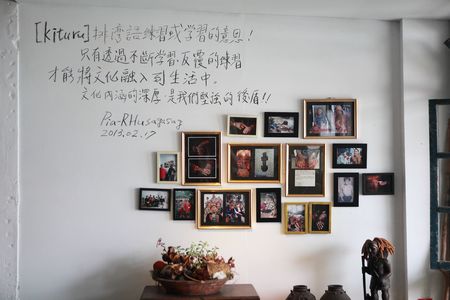 [kituru] 排灣語練習或學習的意思!
只有透過不斷學習、反覆的練習
才能將文化融入到生活中。
文化內涵的深厚,是我們堅強的後盾!!
2013.02.17